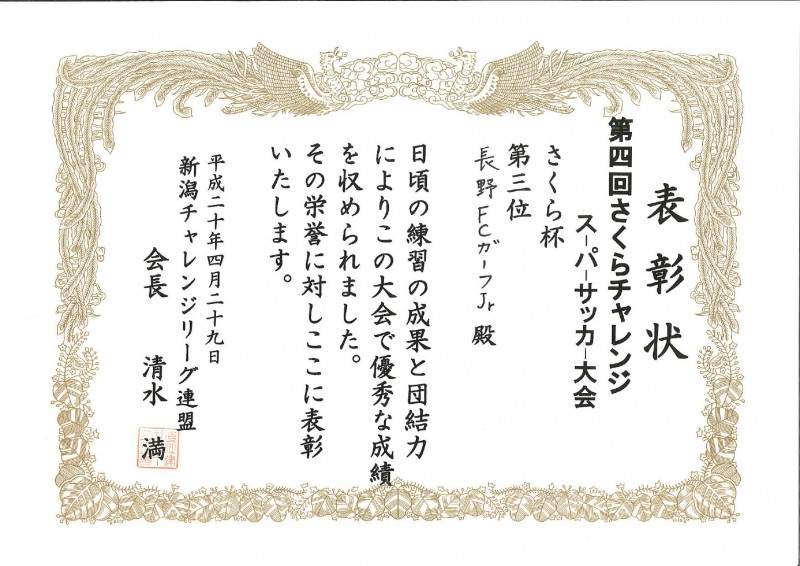 表彰状
第四回さくらチャレンジ
スーパーサッカー大会
さくら杯
第三位
長野FCガーフJr 殿
日頃の練習の成果と団結力
によりこの大会で優秀な成績
を収められました。
その栄誉に対しここに表彰
いたします。
平成二十年四月二十九日
新潟チャレンジリーグ連盟
会長 清水 満